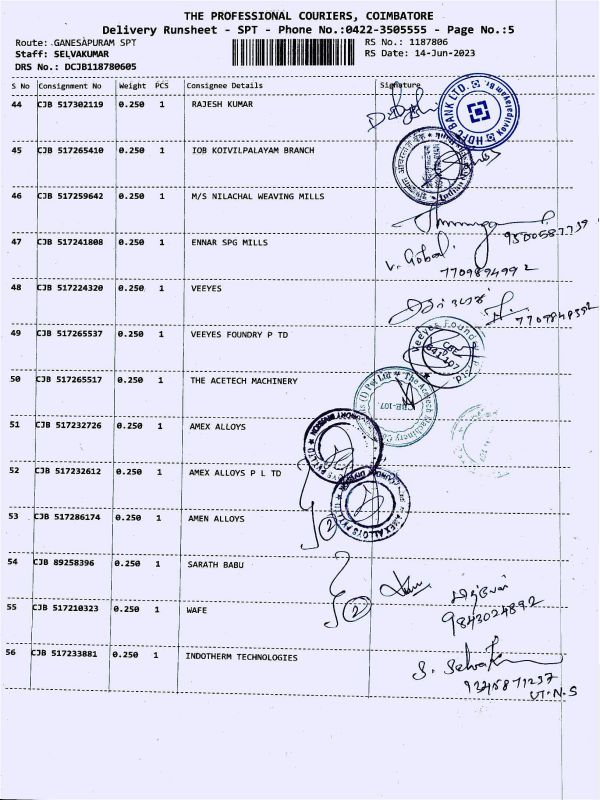 THE PROFESSIONAL COURIERS, COIMBATORE
Delivery Runsheet - SPT - Phone No.:0422-3505555 - Page No.:5
Route: GANESAPURAM SPT
RS No.: 1187806
Staff: SELVAKUMAR
RS Date: 14-Jun-2023
DRS No.: DCJB118780605
S No Consignment No Weight PCS Consignee Details Signature
44 CJB 517302119 0.250 1 RAJESH KUMAR
HDFC BANK LTD.
45 CJB 517265410 0.250 1 IOB KOIVILPALAYAM BRANCH
46 CJB 517259642 0.250 1 M/S NILACHAL WEAVING MILLS
9500587739
47 CJB 517241808 0.250 1 ENNAR SPG MILLS
V. Gobal.
7709894992
48 CJB 517224320 0.250 1 VEEYES
49 CJB 517265537 0.250 1 VEEYES FOUNDRY P TD
Veeyes Foundry
50 CJB 517265517 0.250 1 THE ACETECH MACHINERY
The Acetech Machinery
CBE-107.
51 CJB 517232726 0.250 1 AMEX ALLOYS
52 CJB 517232612 0.250 1 AMEX ALLOYS P L TD
AMEX ALLOYS PVT LTD
53 CJB 517286174 0.250 1 AMEN ALLOYS
2
54 CJB 89258396 0.250 1 SARATH BABU
55 CJB 517210323 0.250 1 WAFE
2
9843024892
56 CJB 517233881 0.250 1 INDOTHERM TECHNOLOGIES
9345871237